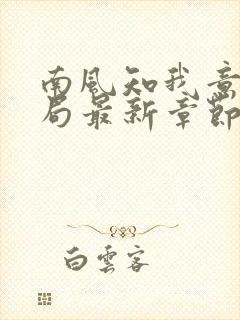 南風知我意
局最新章節
白雲客